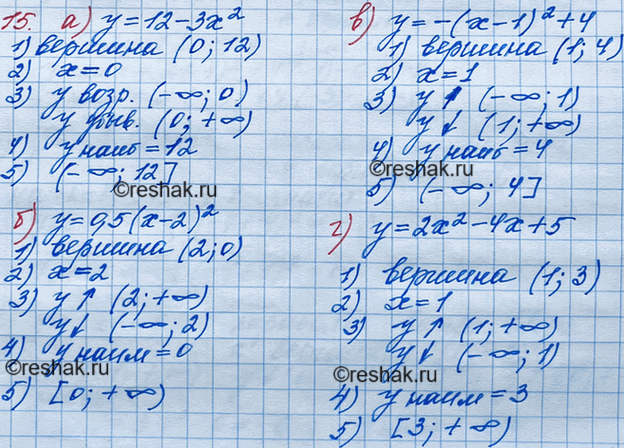 15. а) y=12-3x²
1) вершина (0; 12)
2) x=0
3) y возр. (-∞; 0)
y убыв. (0; +∞)
4) y наиб = 12
5) (-∞; 12]
©reshak.ru
б) y=0,5(x-2)²
1) вершина (2; 0)
2) x=2
3) y↑ (2; +∞)
y↓ (-∞; 2)
4) y наим = 0
©reshak.ru
5) [0; +∞)
в) y=-(x-1)²+4
1) вершина (1; 4)
2) x=1
3) y↑ (-∞; 1)
y↓ (1; +∞)
4) y наиб = 4
©reshak.ru
5) (-∞; 4]
г) y=2x²-4x+5
1) вершина (1; 3)
2) x=1
3) y↑ (1; +∞)
y↓ (-∞; 1)
©reshak.ru
4) y наим = 3
5) [3; +∞)